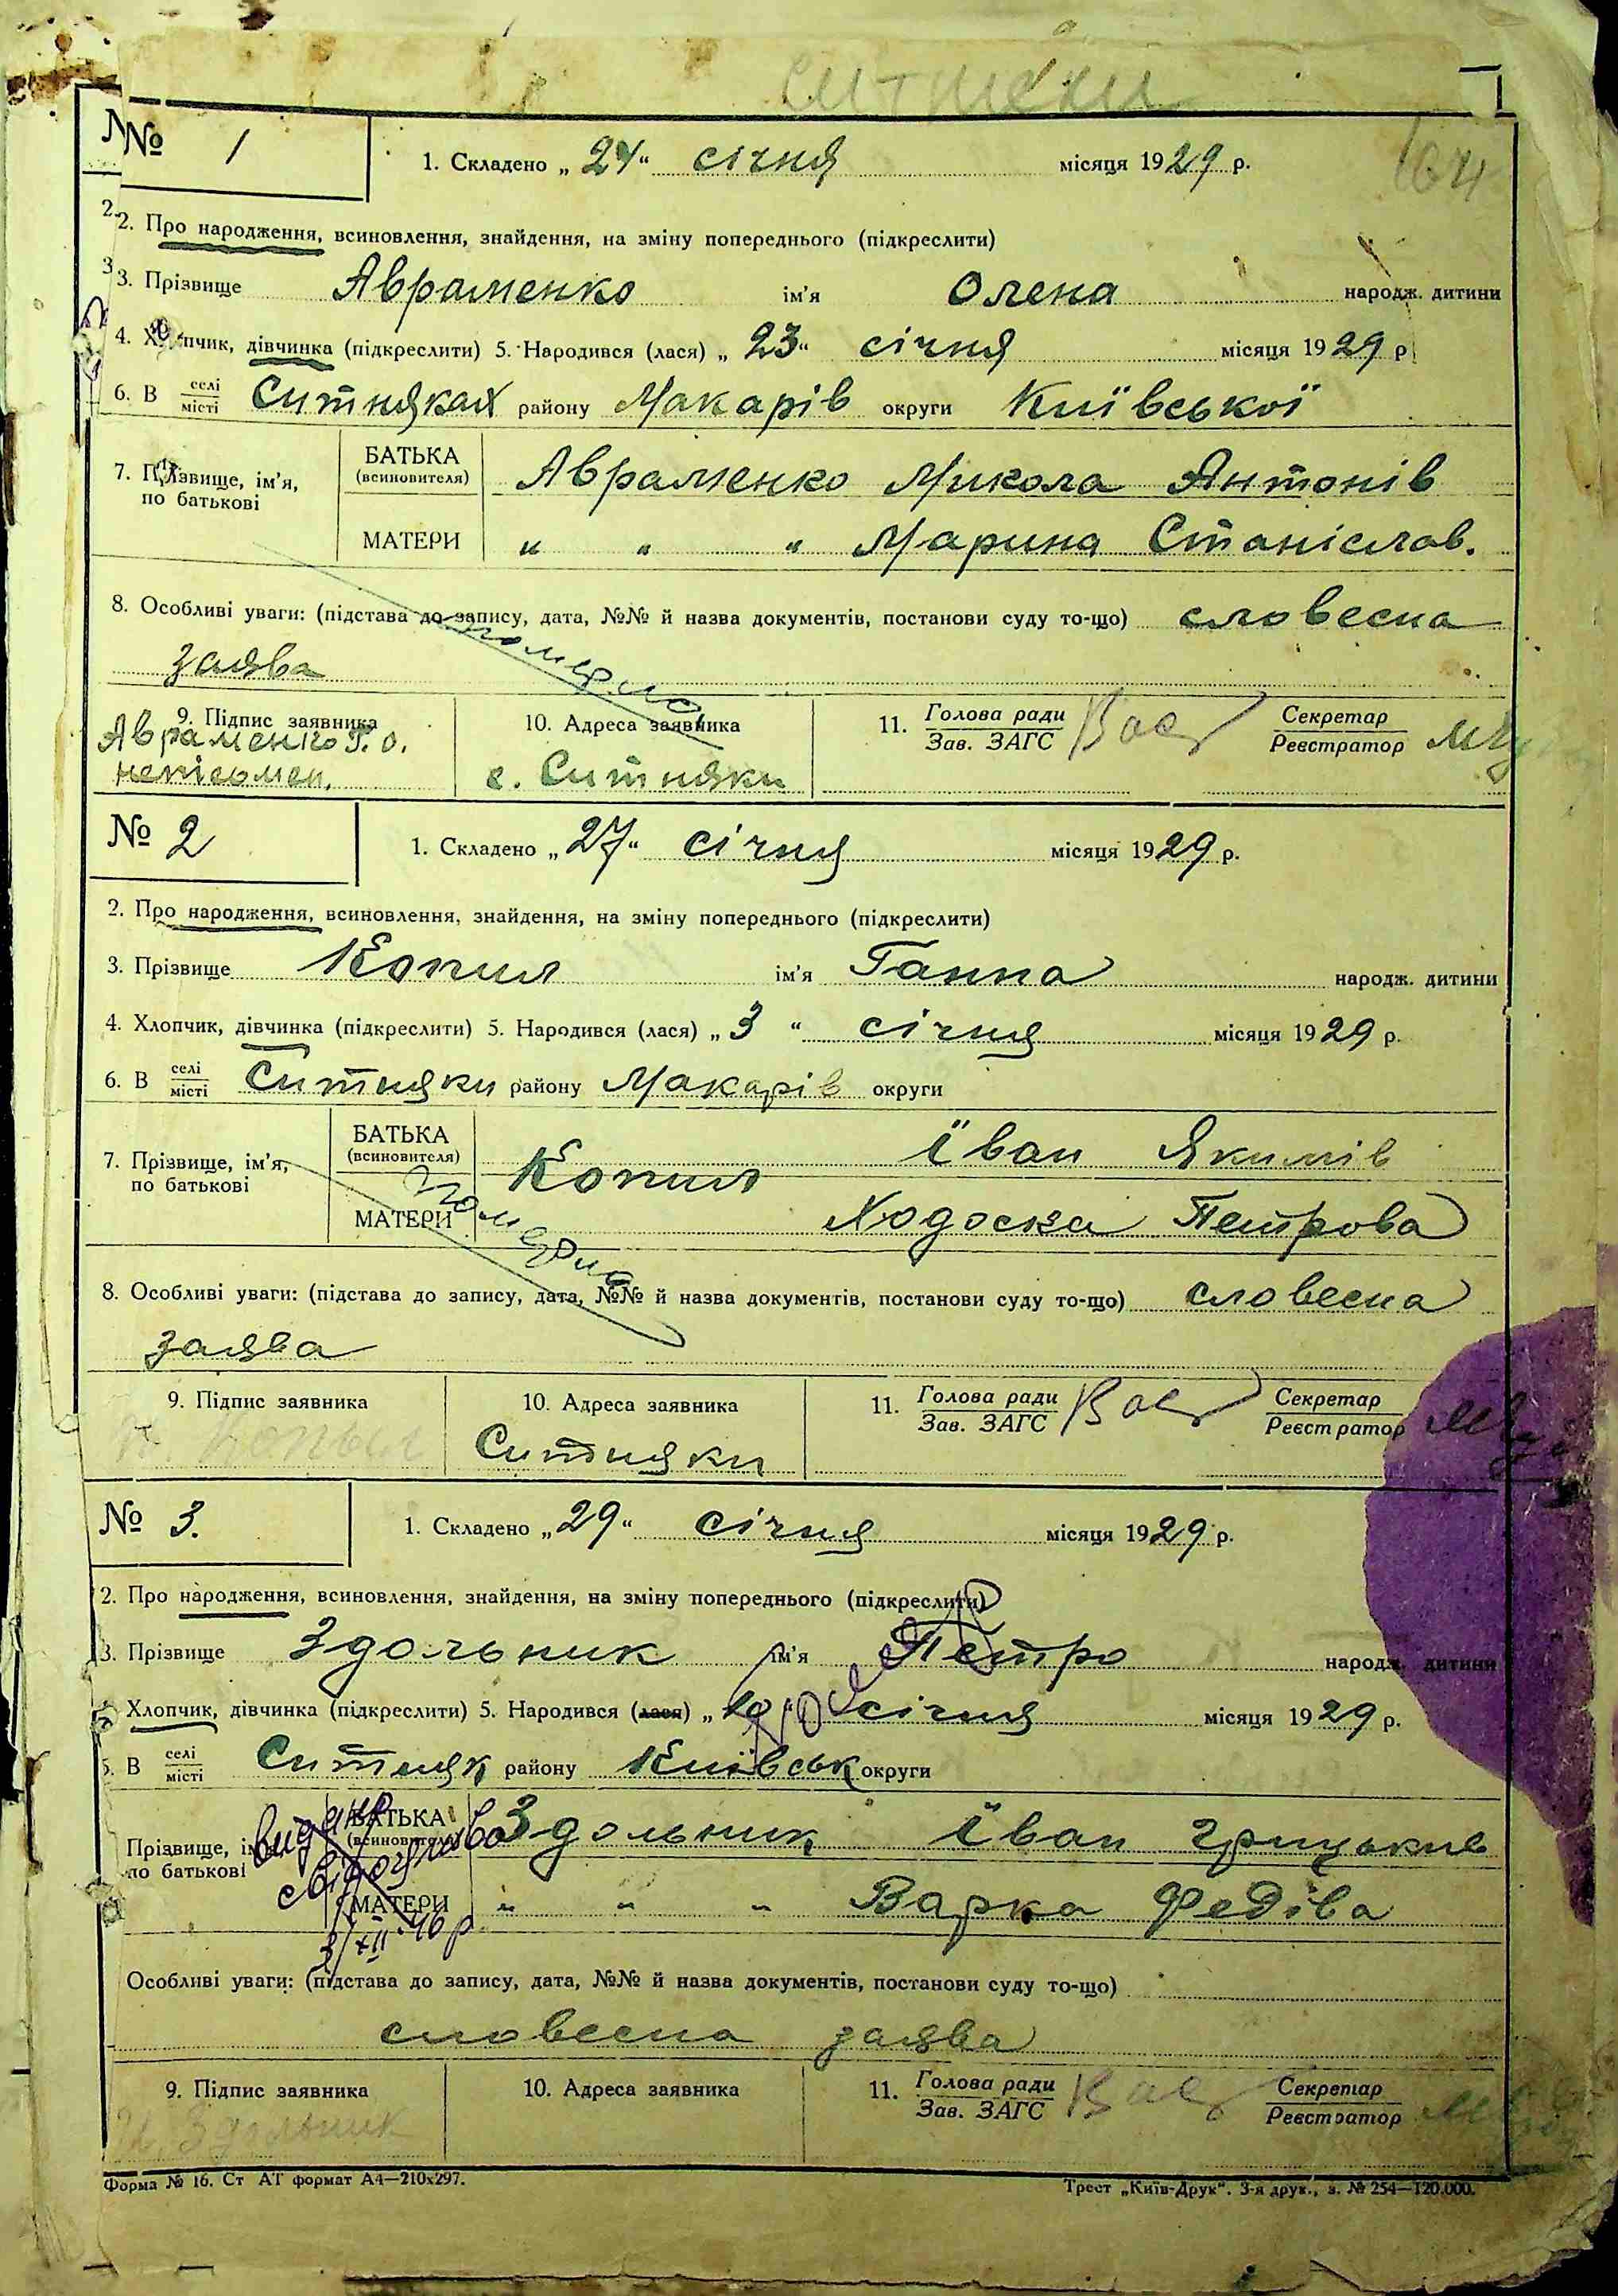 Ситняки
164
№ 1
1. Складено „ 24 “ січня місяця 1929 р.
2. Про народження, всиновлення, знайдення, на зміну попереднього (підкреслити)
3. Прізвище Авраменко ім'я Олена народж. дитини
4. Хлопчик, дівчинка (підкреслити) 5. Народився (лася) „ 23 “ січня місяця 1929 р
6. В селі місті Ситняках району Макарів округи Київської
7. Прізвище, ім'я, по батькові
БАТЬКА (всиновителя) Авраменко Микола Антонів
МАТЕРИ „ „ „ Марина Станіслав.
8. Особливі уваги: (підстава до запису, дата, №№ й назва документів, постанови суду то-що) словесна
заява
померла
9. Підпис заявника 10. Адреса заявника 11. Голова ради Зав. ЗАГС Секретар Реєстратор
Авраменко
неписьмен. с. Ситняки
№ 2
1. Складено „ 27 “ січня місяця 1929 р.
2. Про народження, всиновлення, знайдення, на зміну попереднього (підкреслити)
3. Прізвище Копил ім'я Ганна народж. дитини
4. Хлопчик, дівчинка (підкреслити) 5. Народився (лася) „ 3 “ січня місяця 1929 р.
6. В селі місті Ситняки району Макарів округи
7. Прізвище, ім'я, по батькові
БАТЬКА (всиновителя) Копил Іван Якимів
МАТЕРИ Ходоска Петрова
померла
8. Особливі уваги: (підстава до запису, дата, №№ й назва документів, постанови суду то-що) словесна
заява
9. Підпис заявника 10. Адреса заявника 11. Голова ради Зав. ЗАГС Секретар Реєстратор
Ситняки
№ 3.
1. Складено „ 29 “ січня місяця 1929 р.
2. Про народження, всиновлення, знайдення, на зміну попереднього (підкреслити)
3. Прізвище Здольник ім'я Петро народж. дитини
Хлопчик, дівчинка (підкреслити) 5. Народився (лася) „ 10 “ січня місяця 1929 р.
В селі місті Ситняк району Київськ округи
Прізвище, по батькові
БАТЬКА (всиновителя) Здольник Іван Грицьків
МАТЕРИ „ „ „ Варка Федіва
видано свідоцтво
3/XII 46 р
Особливі уваги: (підстава до запису, дата, №№ й назва документів, постанови суду то-що)
словесна заява
9. Підпис заявника 10. Адреса заявника 11. Голова ради Зав. ЗАГС Секретар Реєстратор
И. Здольник
Форма № 16. Ст АТ формат А4—210х297. Трест „Київ-Друк“. 3-я друк., з. № 254—120.000.